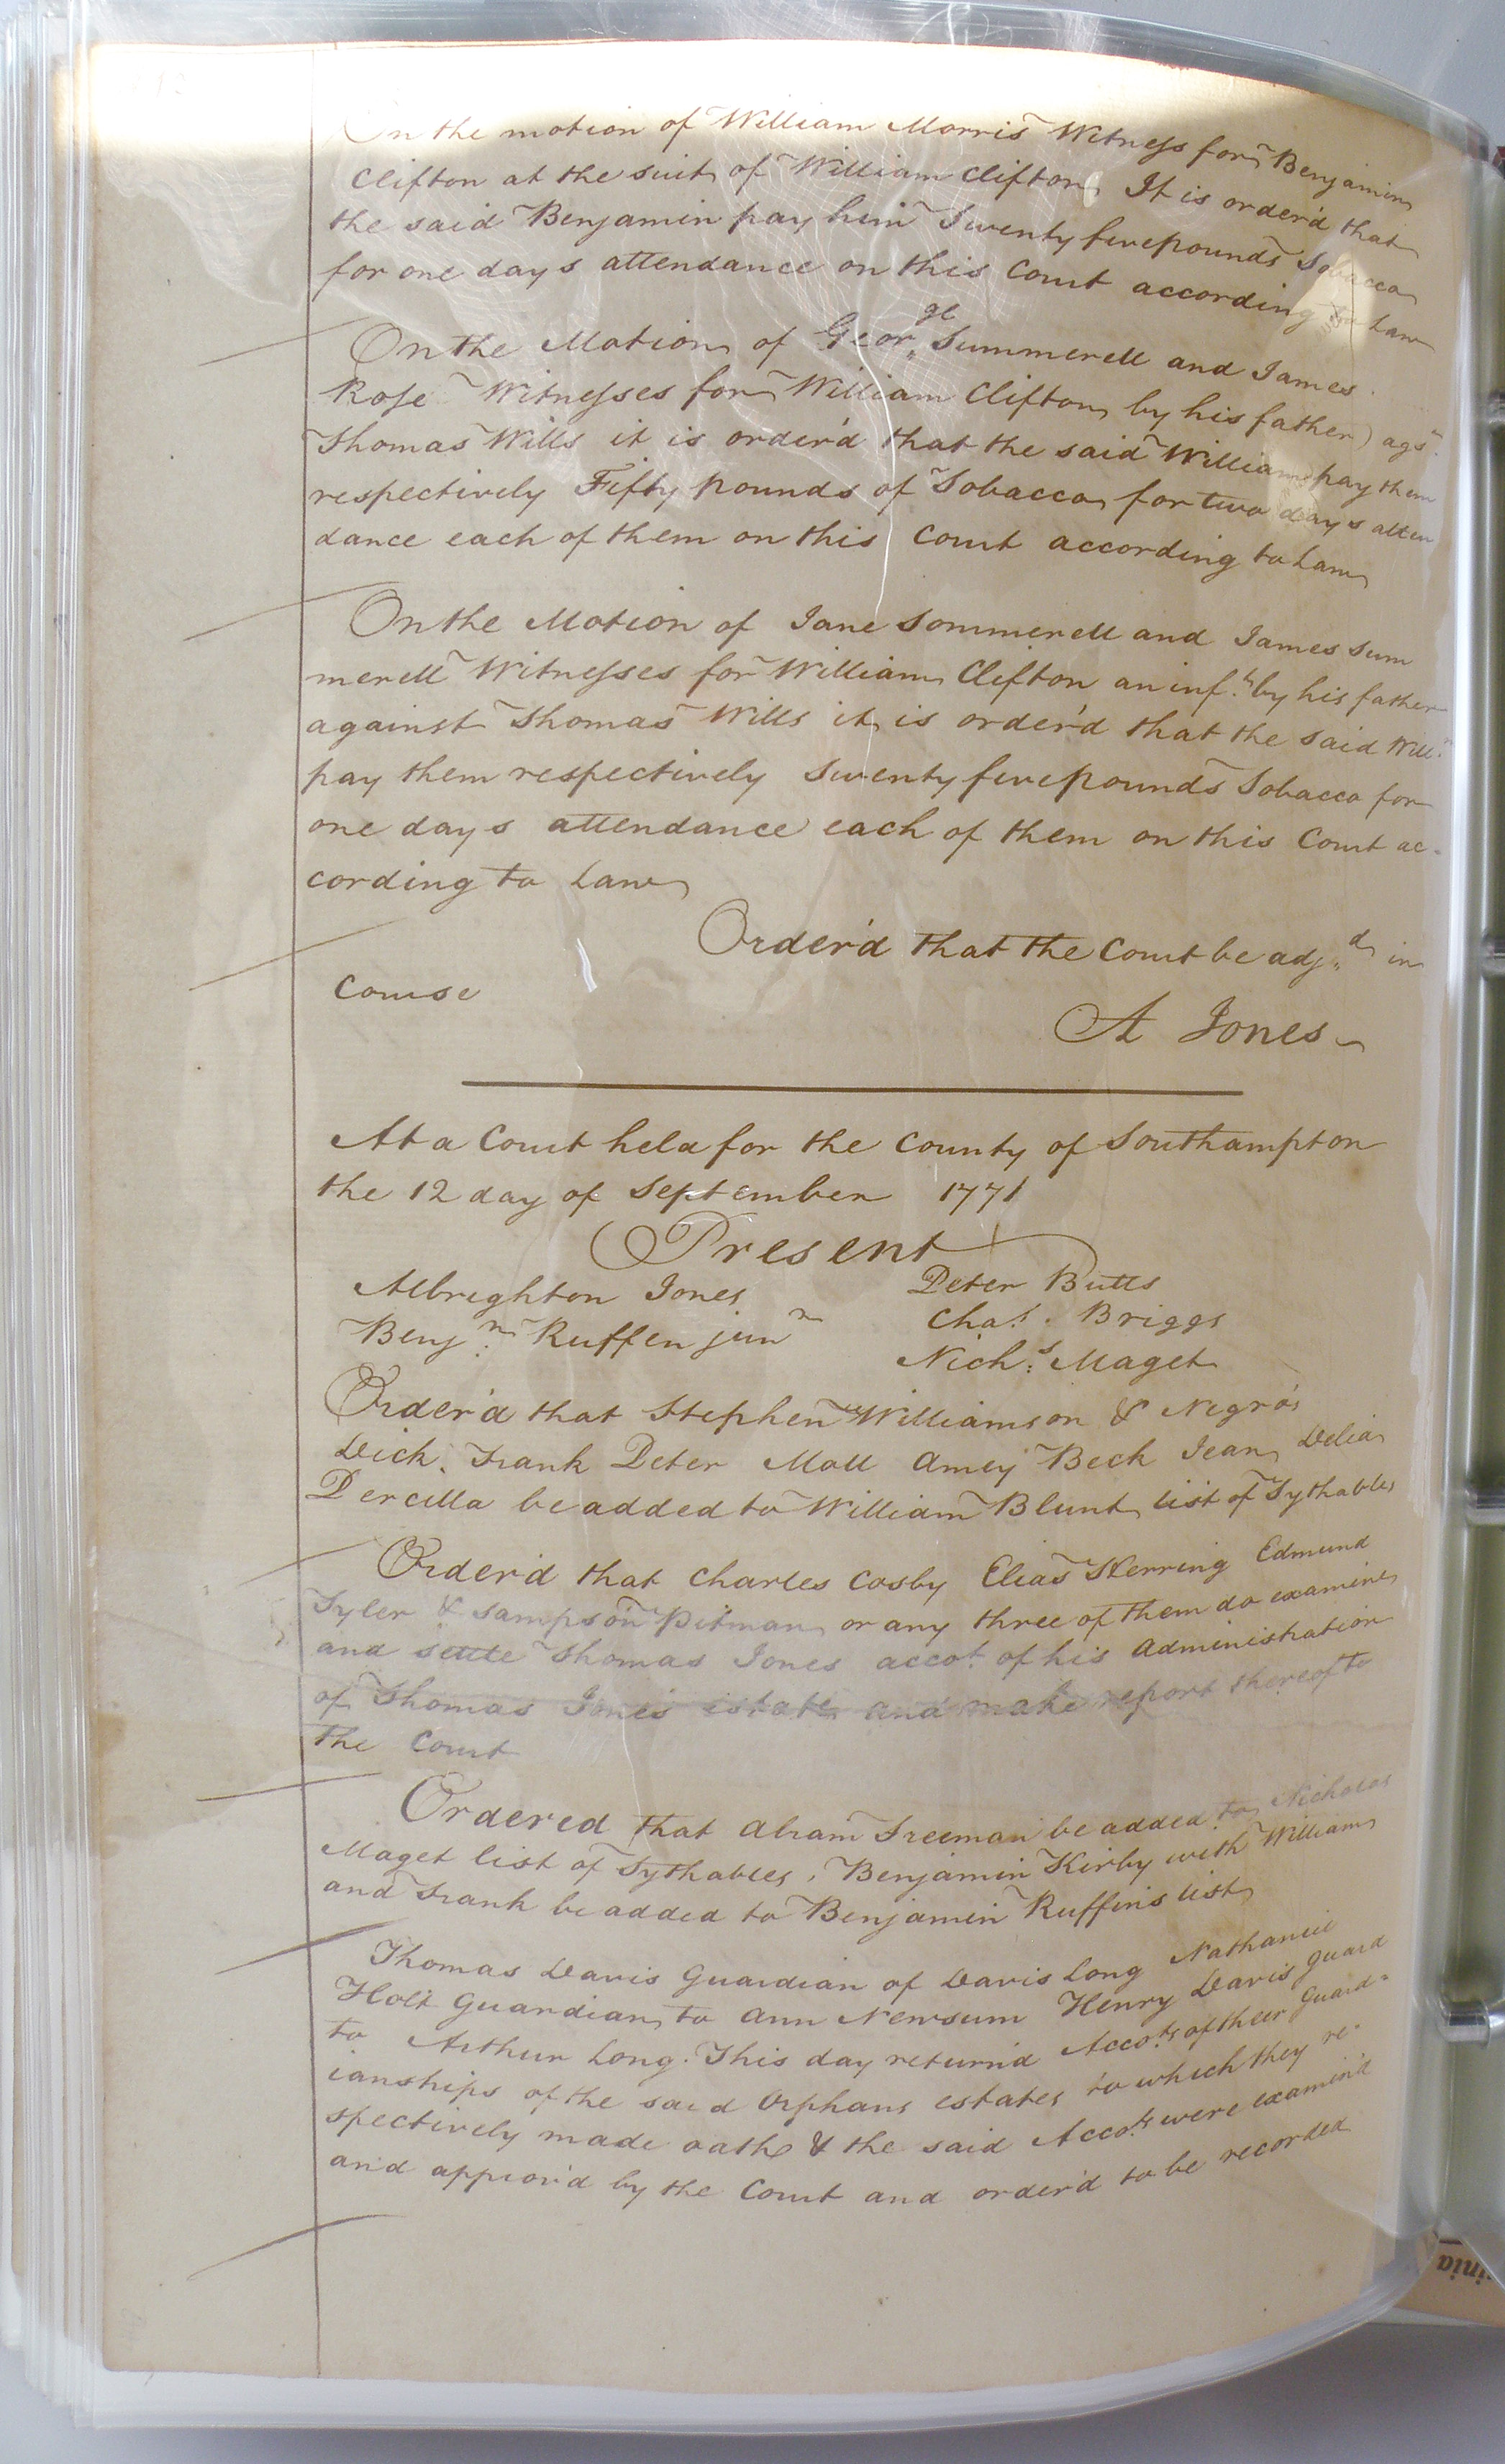 On the motion of William Morris Witness for Benjamin
Clifton at the suit of William Clifton It is order'd that
the said Benjamin pay him Twenty five pounds Tobacco
for one days attendance on this Court according to Law
On the Motion of George Summerell and James
Rose Witnesses for William Clifton by his father) agst
Thomas Wills it is order'd that the said William pay them
respectively Fifty pounds of Tobacco for two days atten
dance each of them on this Court according to Law
On the Motion of Jane Sommerell and James Sum
merell Witnesses for William Clifton an inft by his father
against Thomas Wills it is order'd that the said Willm
pay them respectively Twenty five pounds Tobacco for
one days attendance each of them on this Court ac-
cording to Law
Order'd that the Court be adjd in
Course
A Jones
At a Court held for the County of Southampton
the 12 day of September 1771
Present
Albrighton Jones Peter Butts
Benjn Ruffen junr Chas. Briggs
Nichs Maget
Order'd that Stephen Williamson & Negro's
Dick, Frank Peter Moll Amey Beck Jean Delia
Percilla be added to William Blunt list of Tythables
Order'd that Charles Cosby Elias Herring Edmund
Tyler & Sampson Pitman or any three of them do examine
and settle Thomas Jones accot. of his Administration
of Thomas Jones estate and make report thereof to
the Court
Ordered that Abram Freeman be added to Nicholas
Maget list of Tythables, Benjamin Kirby with William
and Frank be added to Benjamin Ruffin's list
Thomas Davis Guardian of Davis Long Nathaniel
Holt Guardian to Ann Newsum Henry Davis Guard
to Arthur Long. This day return'd Accots of their Guard-
ianships of the said Orphans estates to which they re-
spectively made oath & the said Accots were examin'd
and approv'd by the Court and order'd to be recorded